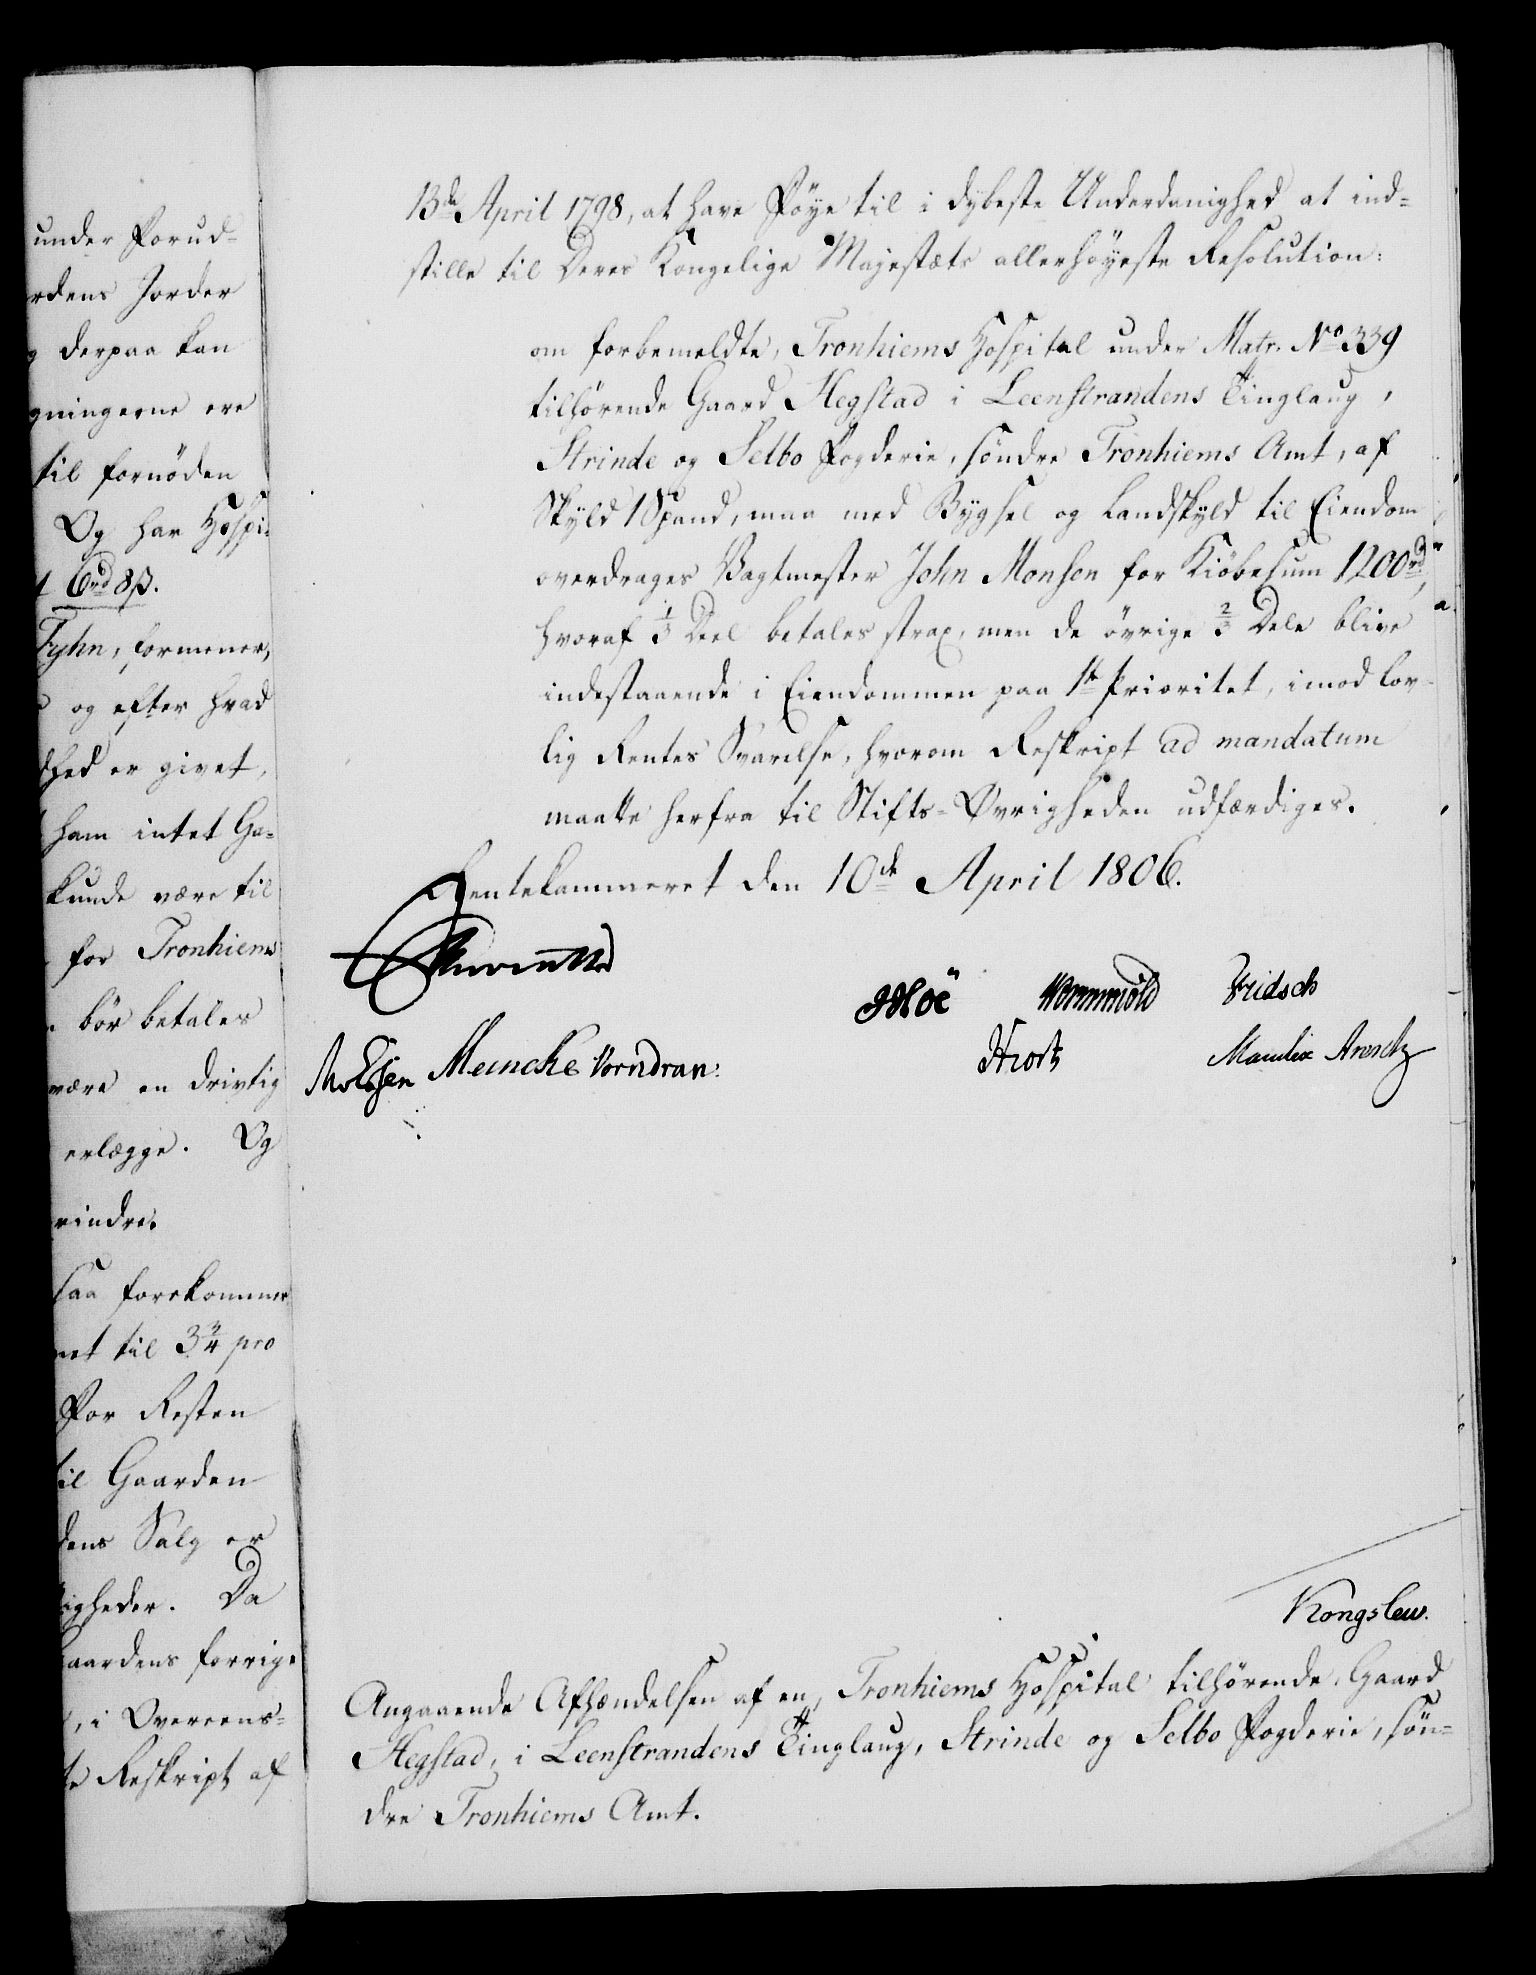 under Forud-
rdens Jorder
derpaa kan
gningerne ere
til fornöden
Og har Hospi-
6rd 8ß.
Fyhn, formener,
og efter hvad
dhed er givet,
ham intet Ga-
kunde være til
for Tronhiems
bör betales
være en drivtig
erlægge. Og
rindre.
saa forekommer
net til 3 3/4 pro
For Resten
til Gaarden
dens Salg er
igheder. Da
aardens forrige
, i Overeens-
te Reskript af
13de April 1798, at have Föye til i dybeste Underdanighed at ind-
stille til Deres Kongelige Majestæts allerhöyeste Resolution:
om forbemeldte, Tronhiems Hospital under Matr. No 339
tilhörende Gaard Hegstad i Leenstrandens Tinglaug,
Strinde og Selbo Fogderie, söndre Tronhiems Amt, af
Skyld 1 Spand, maa med Bygsel og Landskyld til Eiendom
overdrages Vagtmester John Monson for Kiöbesum 1200 rdr,
hvoraf 1/3 Deel betales strax, men de övrige 2/3 Dele blive
indestaaende i Eiendommen paa 1te Prioritet, imod lov-
lig Rentes Svarelse, hvorom Reskript ad mandatum
maatte herfra til Stifts-Øvrigheden udfærdiges.
Rentekammeret den 10de April 1806.
Wormskiöld Fridsch
Meincke Vorndran: Hiort Manthey Arentz
Kongslew.
Angaaende Afhændelsen af en, Tronhiems Hospital tilhörende, Gaard
Hegstad, i Leenstrandens Tinglaug, Strinde og Selbo Fogderie, sön-
dre Tronhiems Amt.